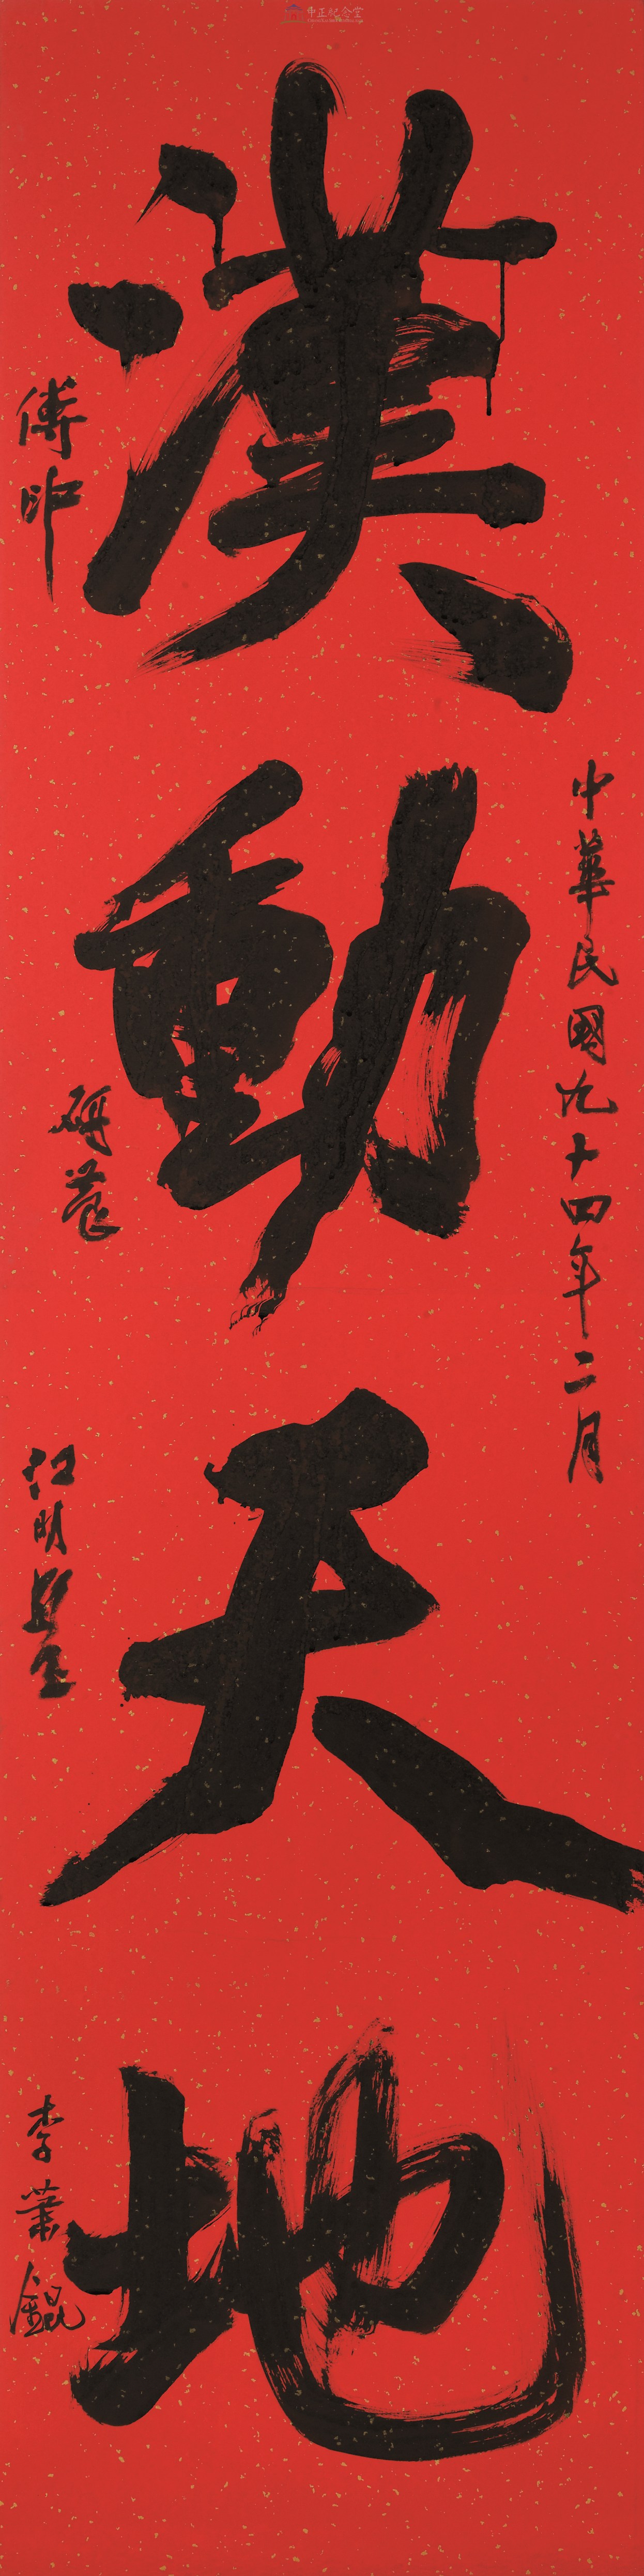 中正紀念堂
中華民國九十四年二月
漢動天地
傅申
薛平南
江明賢
李蕭錕